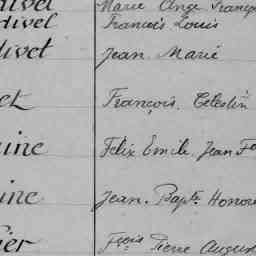 divel Marie Ange François
divel François Louis
divet Jean Marie
et François Célestin
ine Félix Emile Jean Fo
ine Jean Bapte Honoré
ier Fçois Pierre August